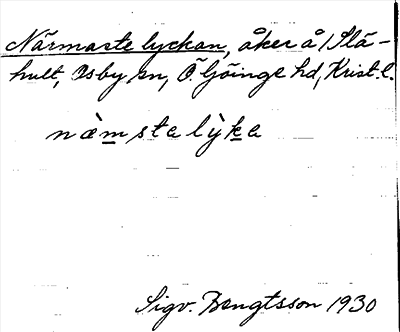 Närmaste lyckan, åker å Slä-
hult, Osby sn, Ö. Göinge hd, Krist. l.
næ̀mstalỳka
Sigv. Bengtsson 1930